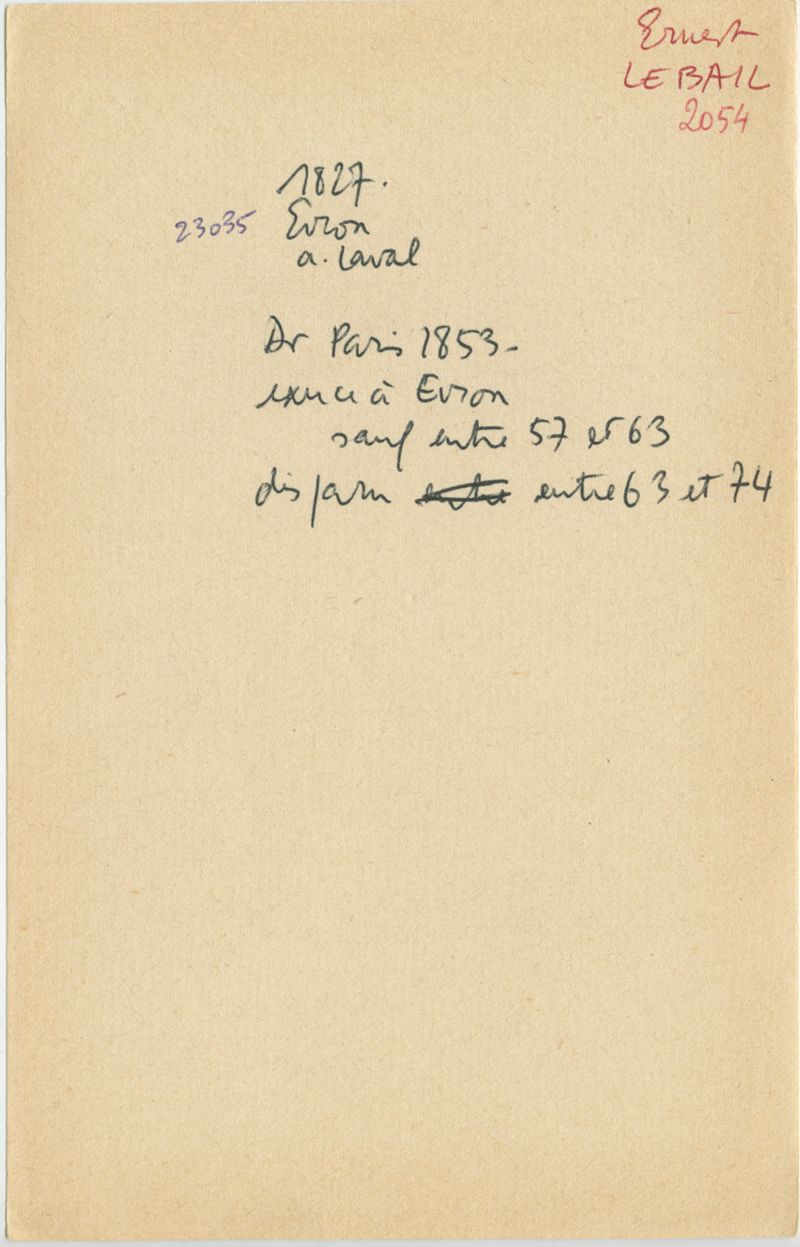 Ernest
LE BAIL
2054
1827.
23035 Evron
a. Laval
Dr Paris 1853-
exerce à Evron
sauf entre 57 et 63
disparu entre entre 63 et 74